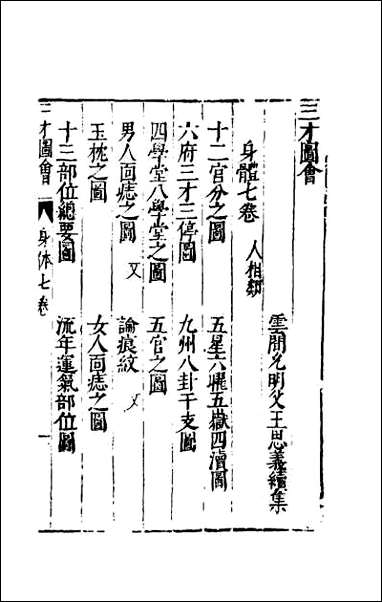 三才圖會
雲間允明父王思義續集
身體七卷 人相類
十二宮分之圖 五星六曜五嶽四瀆圖
六府三才三停圖 九州八卦干支圖
四學堂八學堂之圖 五官之圖
男人面痣之圖 又 論痕紋 又
玉枕之圖 女人面痣之圖
十三部位總要圖 流年運氣部位圖
三才圖會 身体七卷 一